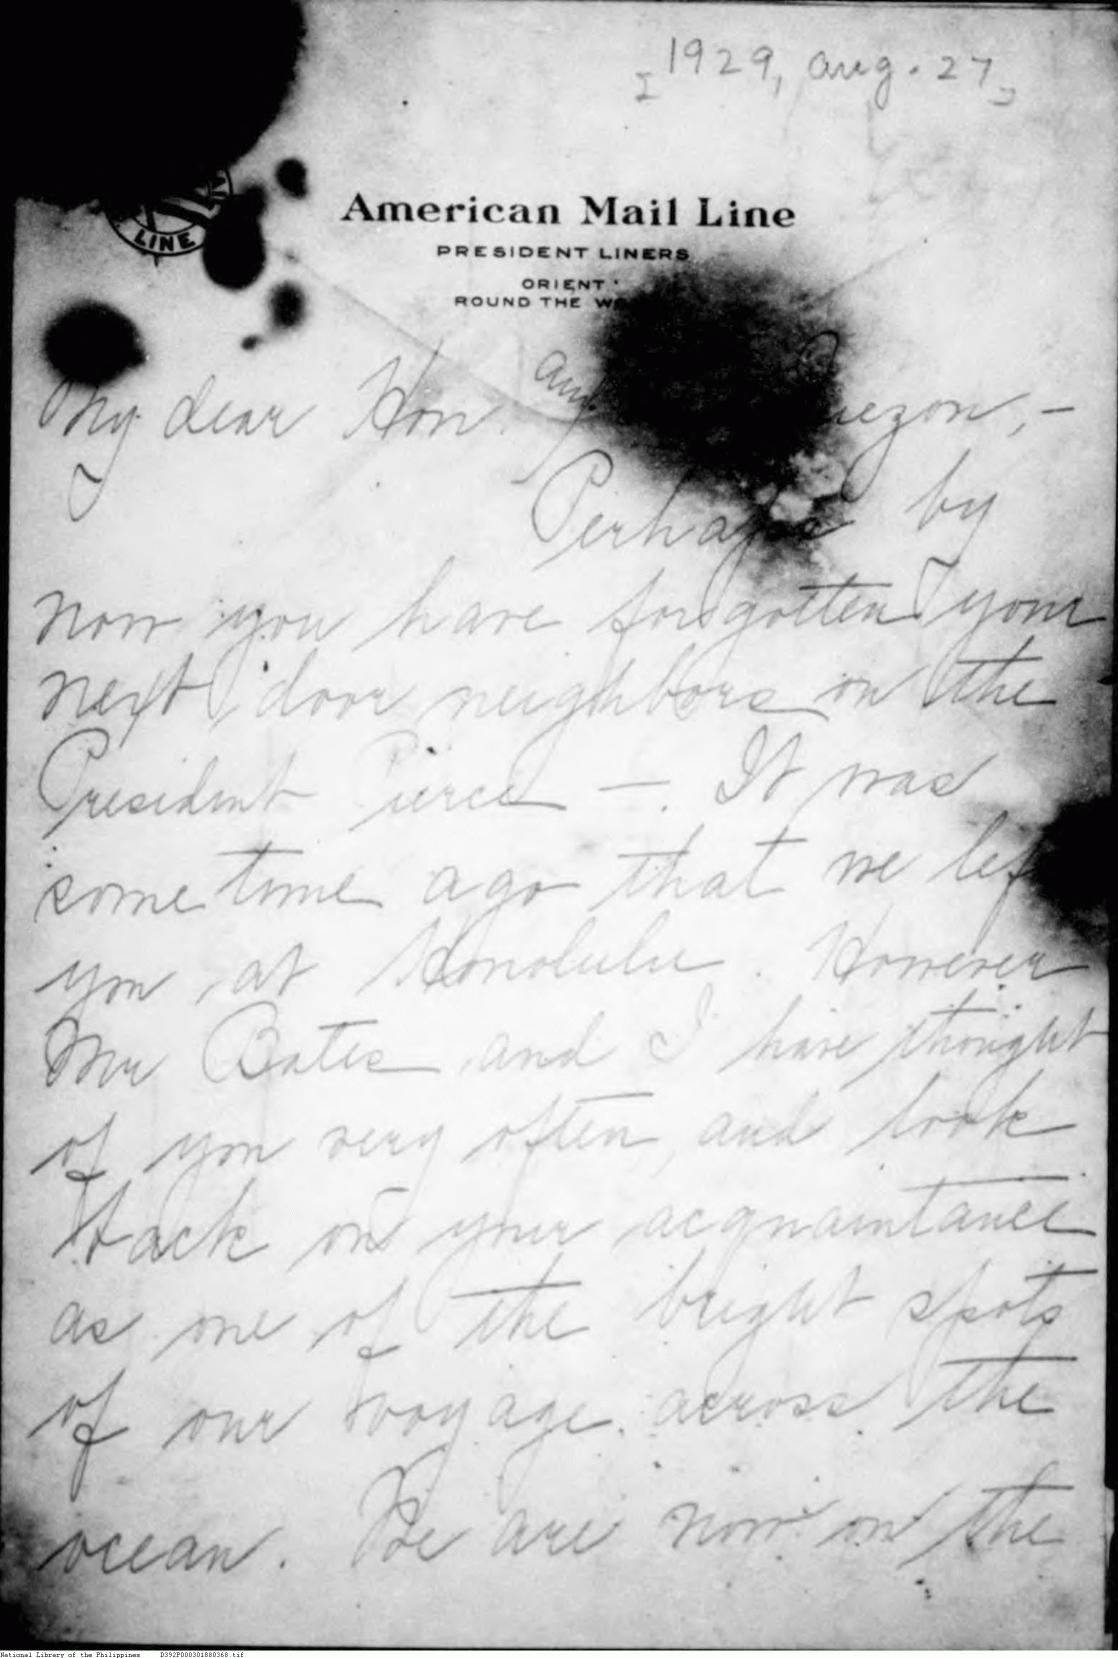 [1929, Aug. 27]
LINE
American Mail Line
PRESIDENT LINERS
ORIENT
ROUND THE
Aug.
My dear Hon. Quezon, -
Perhaps by
now you have forgotten your
next door neighbors on the
President Pierce -. It was
sometime ago that we left
you at Honolulu. However
Mr Bates and I have thought
of you very often, and look
back on your acquaintance
as one of the bright spots
of our voyage across the
ocean. We are now on the
National Library of the Philippines D392P000301880368.tif